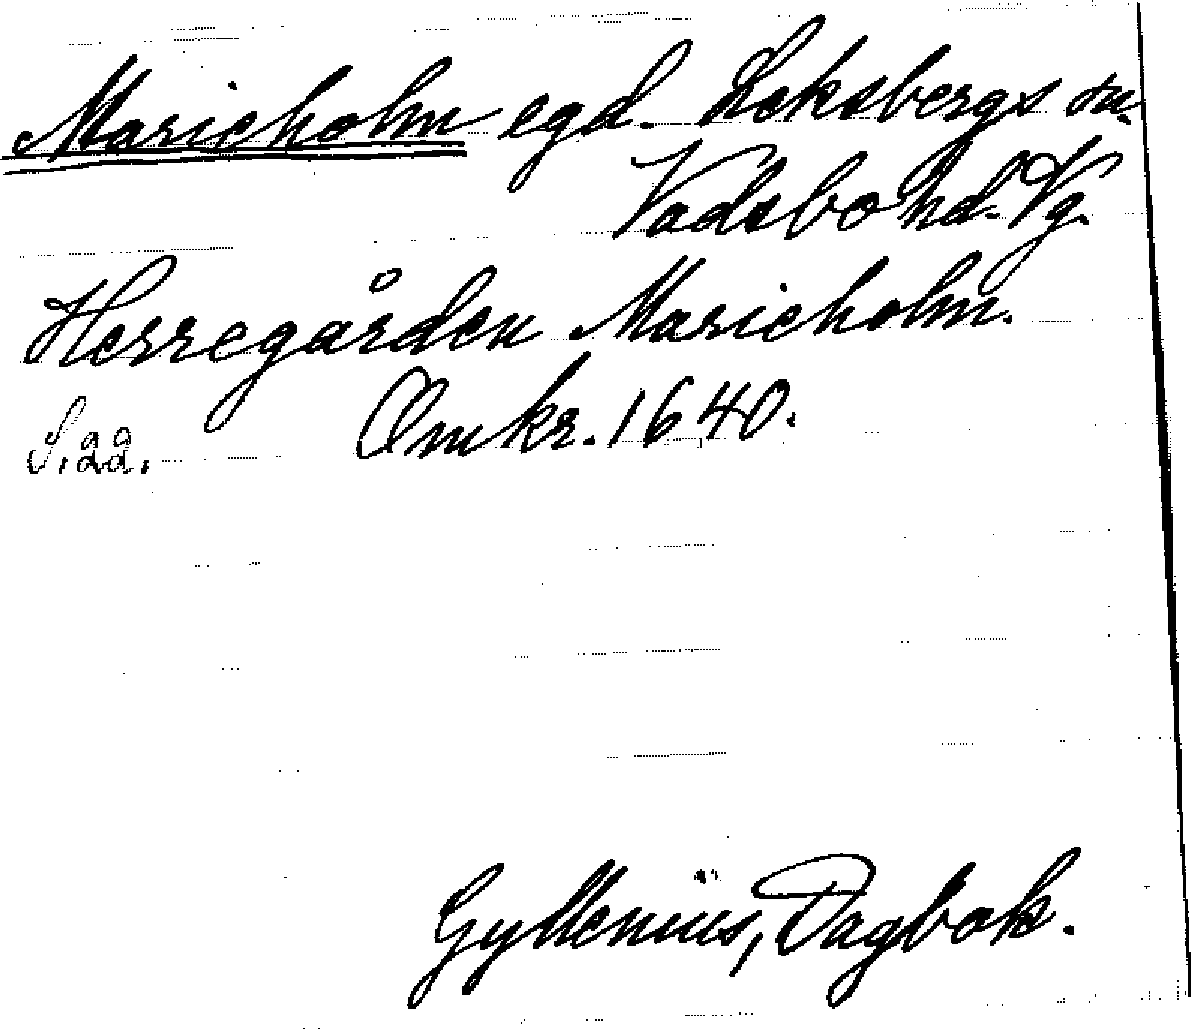 Marieholm egd. Leksbergs sn.
Vadsbo hd. Vg.
Herregården Marieholm.
Omkr. 1640.
S. 22.
Gyllenius, Dagbok.